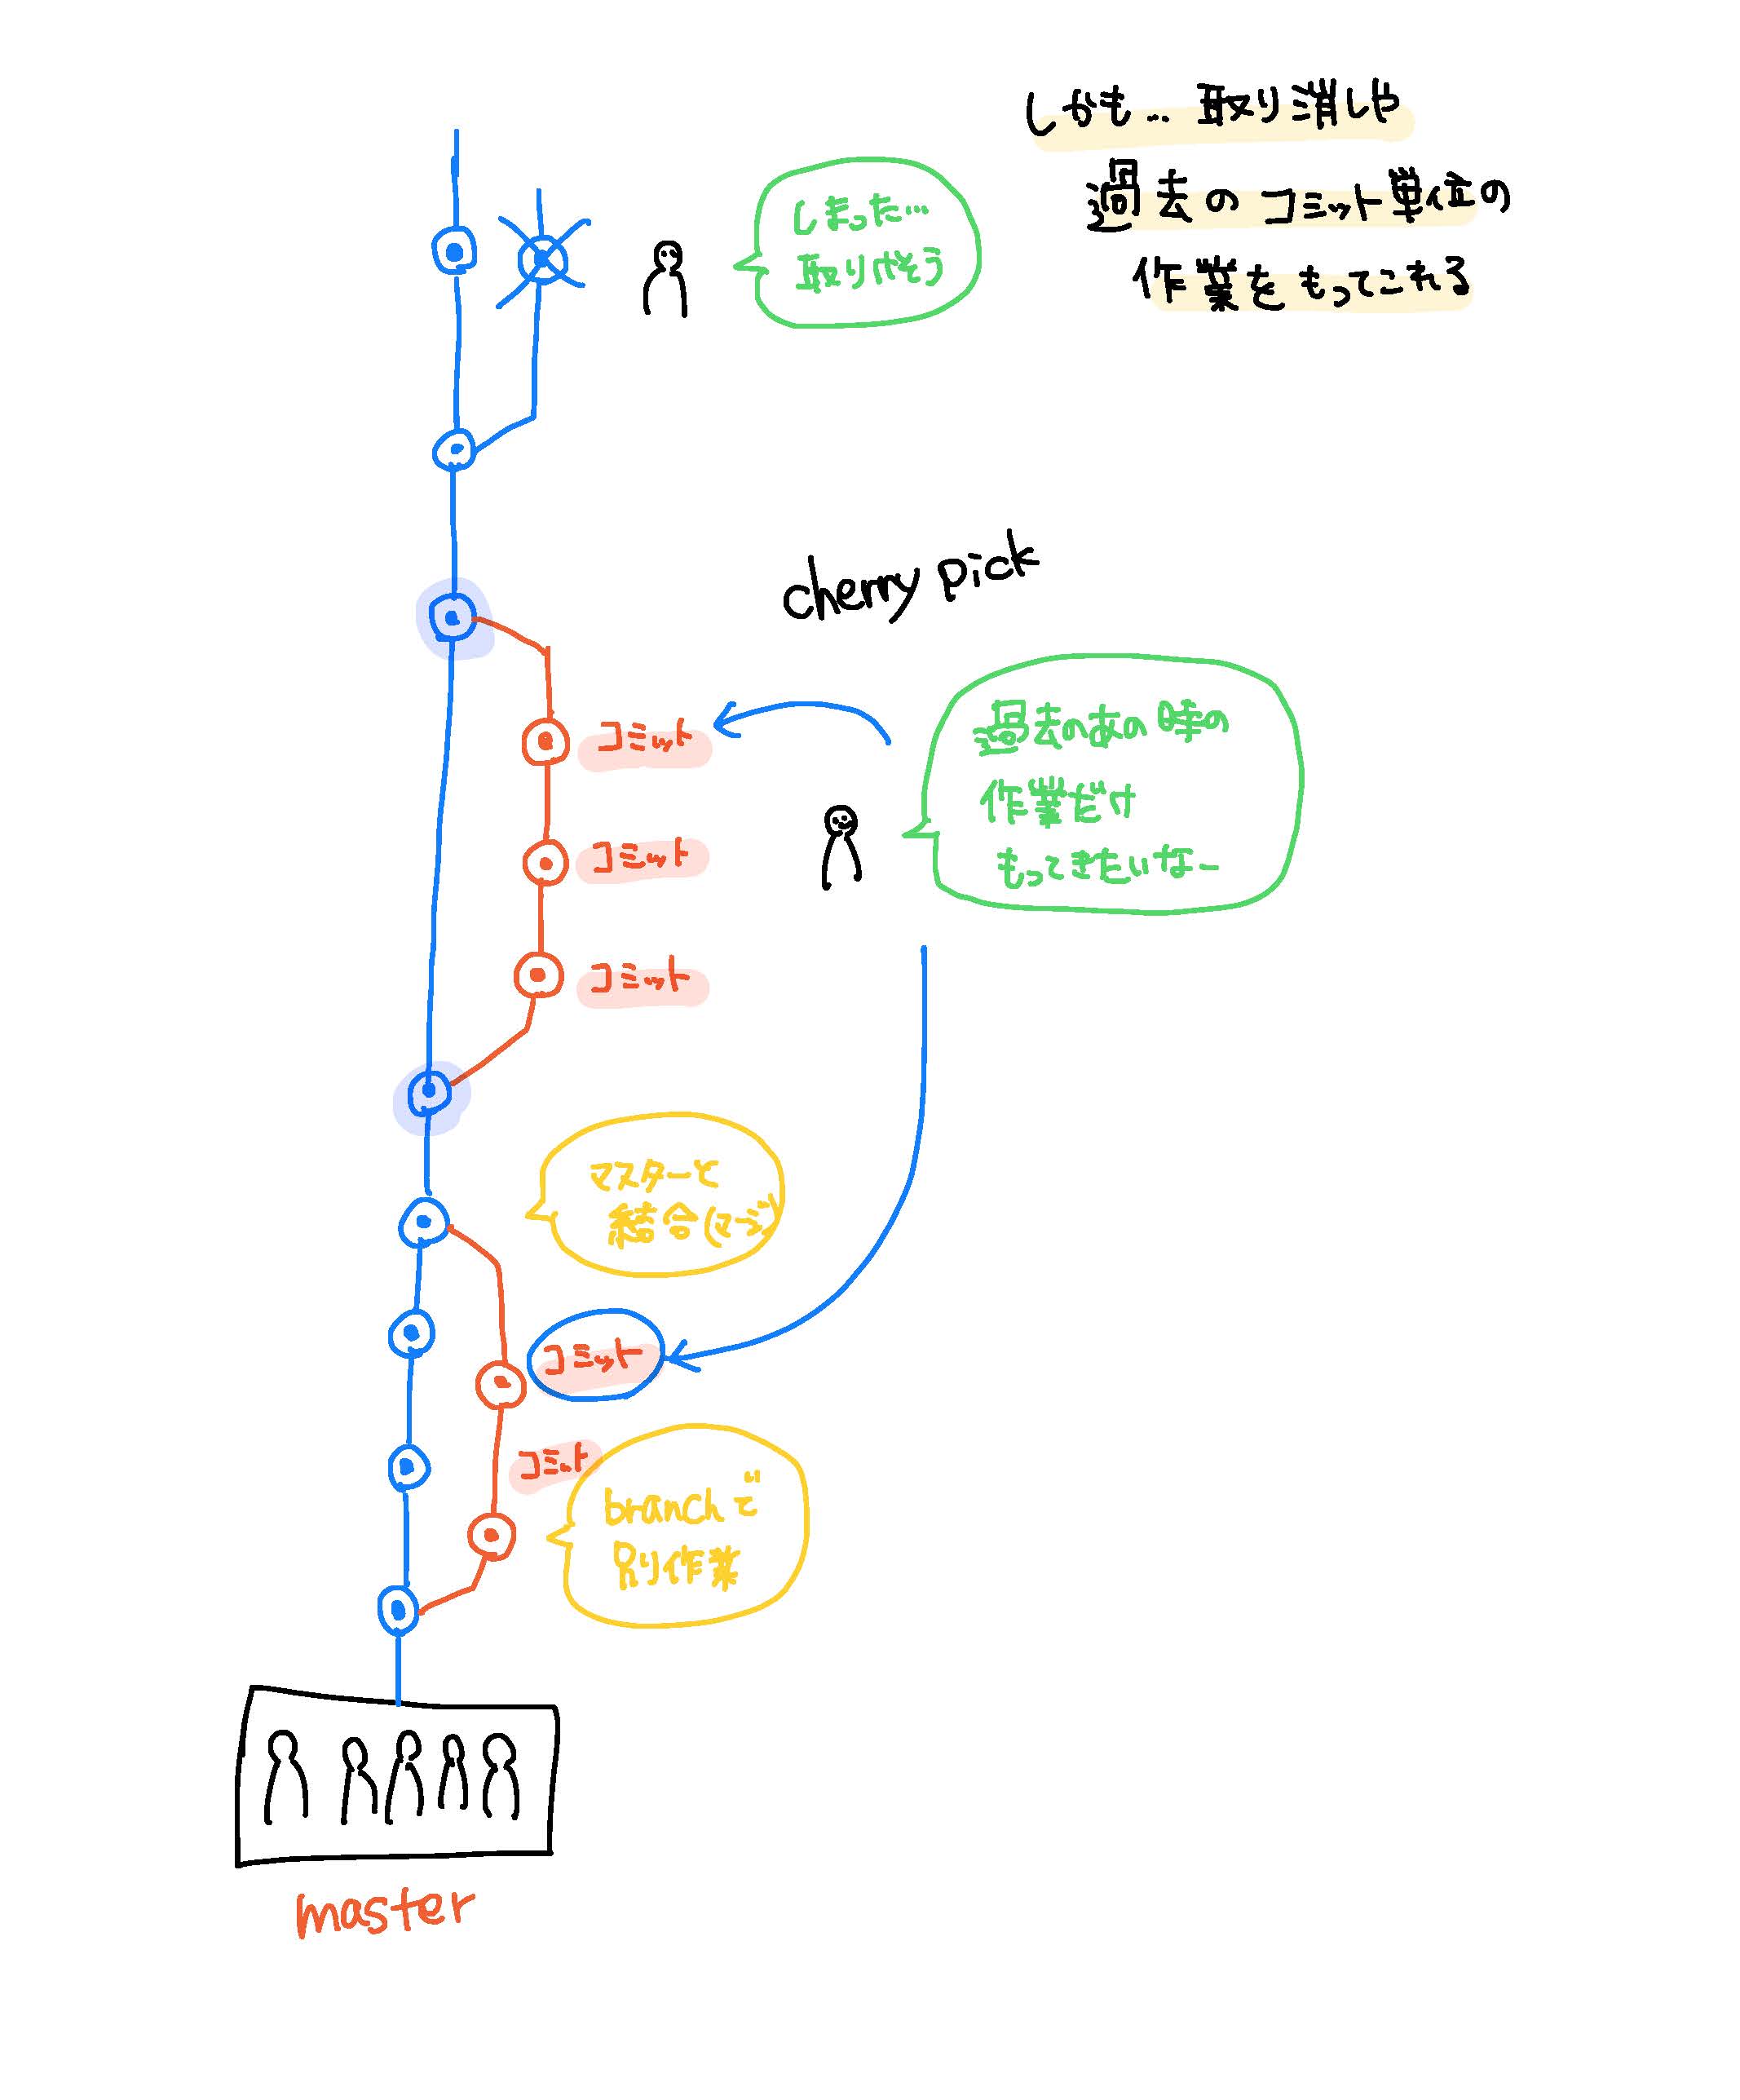 しかも.. 取り消しや
過去のコミット単位の
作業をもってこれる
しまった...
取りけそう
cherry pick
過去のあの時の
作業だけ
もってきたいなー
コミット
コミット
コミット
マスターと
結合(マージ)
コミット
コミット
branchで
別作業
master